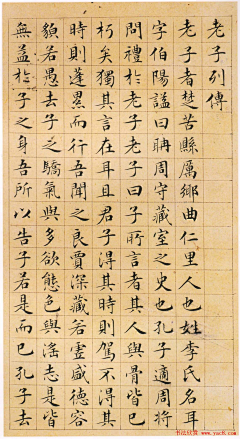 老子列傳
老子者楚苦縣厲鄉曲仁里人也姓李氏名耳
字伯陽謚曰聃周守藏室之史也孔子適周將
問禮於老子老子曰子所言者其人與骨皆已
朽矣獨其言在耳且君子得其時則駕不得其
時則蓬累而行吾聞之良賈深藏若虛盛德容
貌若愚去子之驕氣與多欲態色與淫志是皆
無益於子之身吾所以告子若是而已孔子去
书法欣赏
www.yac8.com